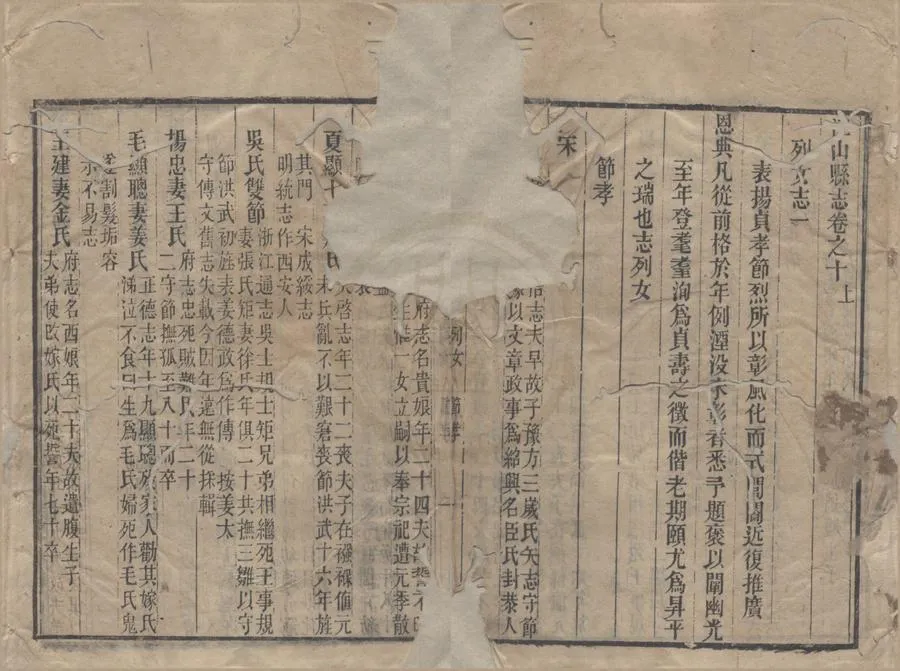 山縣志卷之十上
列女志一
表揚貞孝節烈所以彰風化而式閭閻近復推廣
恩典凡從前格於年例湮沒未彰者悉予題褒以闡幽光
至年登耄耋洵爲貞壽之徵而偕老期頤尤爲昇平
之瑞也志列女
節孝
宋
志夫早故子豫方三歲氏矢志守節
以文章政事爲紹興名臣氏封恭人
府志名貴娘年二十四夫故誓不
生惟一女立嗣以奉宗祀遭元季散
列女 節孝 一
夏顯十
啓志年二十二喪夫子在襁褓値元
末兵亂不以艱窘喪節洪武十六年旌
其門 宋成綏志
明統志作西安人
吳氏雙節
浙江通志吳士規士矩兄弟相繼死王事規
妻張氏矩妻徐氏年俱二十共撫三雛以守
節洪武初旌表姜德政爲作傳 按姜太
守傳文舊志失載今因年遠無從採輯
楊忠妻王氏
府志忠死賊難氏年二十
二守節撫孤至八十而卒
毛顯聰妻姜氏
正德志年十九顯聰歿家人勸其嫁氏
涕泣不食曰生爲毛氏婦死作毛氏鬼
割髮垢容
示不易志
王建妻金氏
府志名酉娘年二十夫故遺腹生子
夫弟使改嫁氏以死誓年七十卒